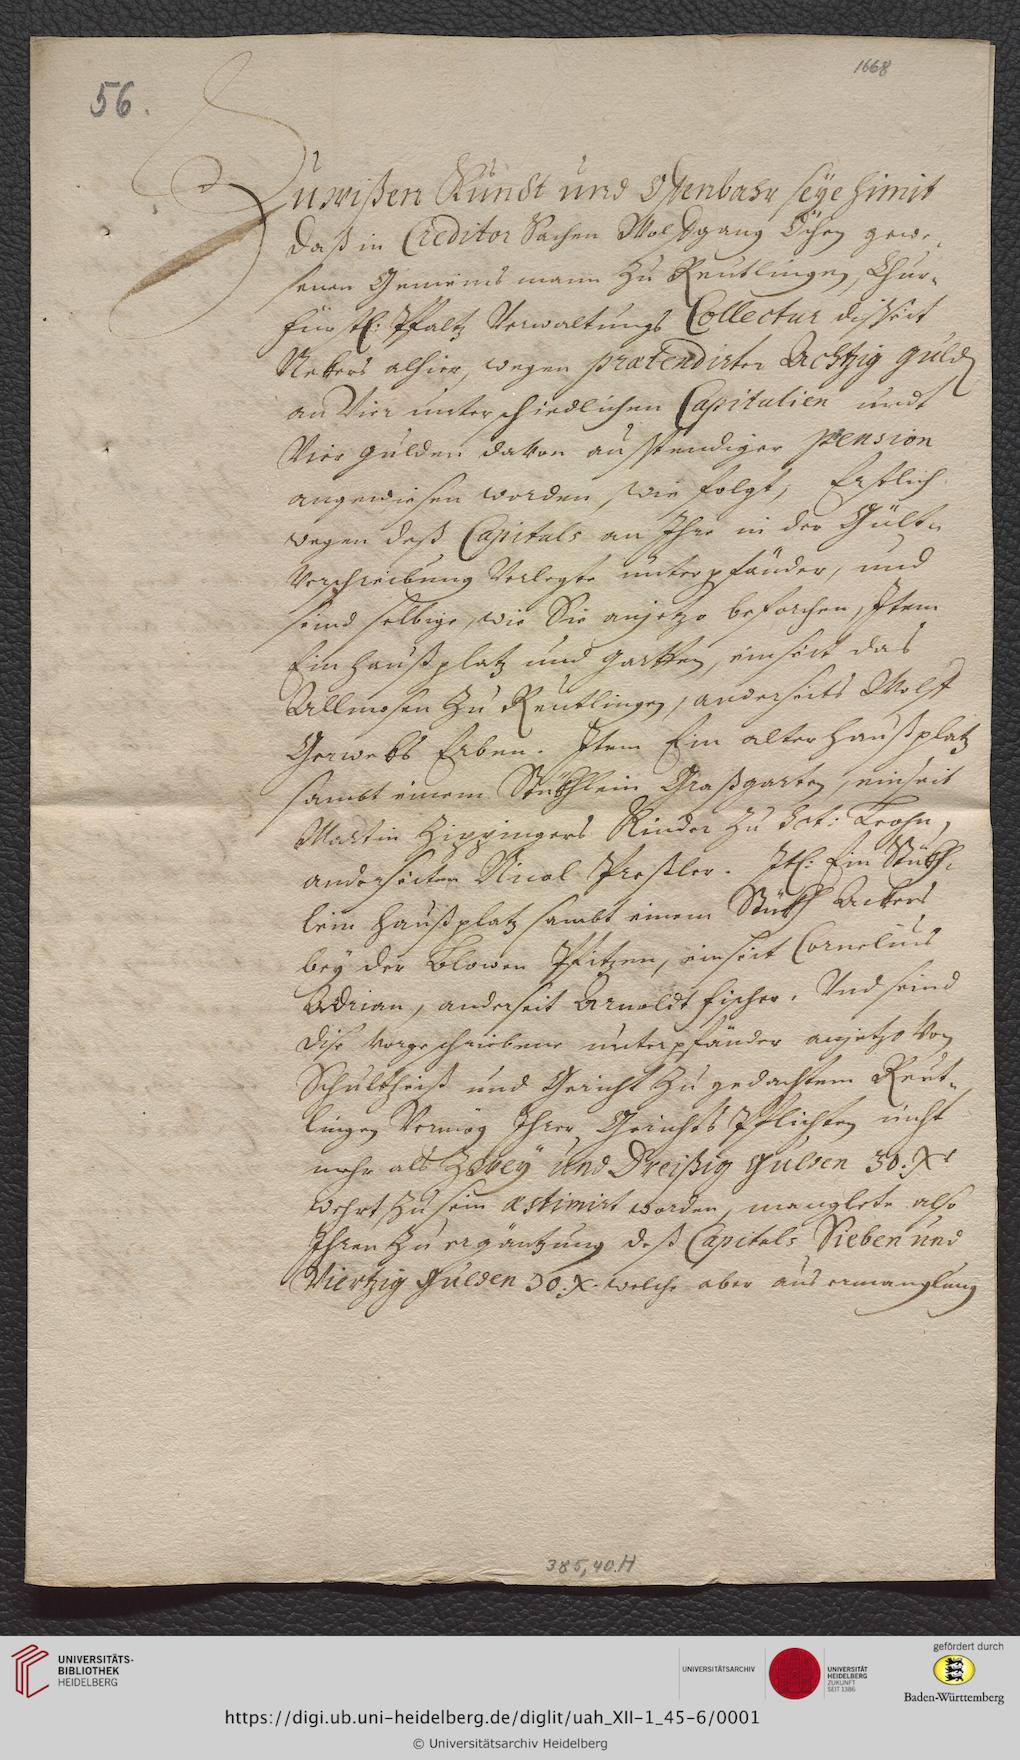 1668
56.
Zu wißen Kundt und Offenbahr seye himit
daß in Creditor Sachen Wolfgang gewe-
senen Gemeinsmann zu Reutlingen, Chur-
fürstl: Pfaltz Verwaltungs Collectur disseit
Nekers alhier, wegen prætendirter Achtzig guld
an Vier unterschiedlichen Capitalien undt
Vier gulden davon ausstendiger pension
angewiesen worden, wie folgt, Erstlich
wegen deß Capitals an Ihre in der Gült-
Verschreibung Verlegte unterpfänder, und
seind selbige, wie Sie anjetzo beforchen, Item
Ein haußplatz und gartten, einseit das
Allmosen zu Reutlingen, anderseits Wolf
Erben. Item Ein alter haußplatz
sambt einem Stükhlein Graßgarten, einseit
Martin Zippingers Kinder zu
anderseiten Nicol Preßler. Itl: Ein Stükh-
lein haußplatz sambt einem Stükh Ackers
bey der Pfitzen, einseit Cornelius
Adrian, anderseit Arnoldt fischer. Und seind
dise vorgeschriebene unterpfänder anjetzo von
Schultheiß und Gericht zu gedachtem Reut-
lingen Vermög Ihrer Gerichts Pflichten nicht
mehr als Zwey und Dreißig gulden 30. Xr
wehrt zu sein æstimirt worden, manglete also
Ihren zu ergäntzung deß Capitals Sieben und
Viertzig Gulden 30. X. welche aber aus ermanglung
385,40.H
UNIVERSITÄTS-
BIBLIOTHEK
HEIDELBERG
UNIVERSITÄTSARCHIV
UNIVERSITÄT
HEIDELBERG
ZUKUNFT
SEIT 1386
gefördert durch
Baden-Württemberg
https://digi.ub.uni-heidelberg.de/diglit/uah_XII-1_45-6/0001
© Universitätsarchiv Heidelberg